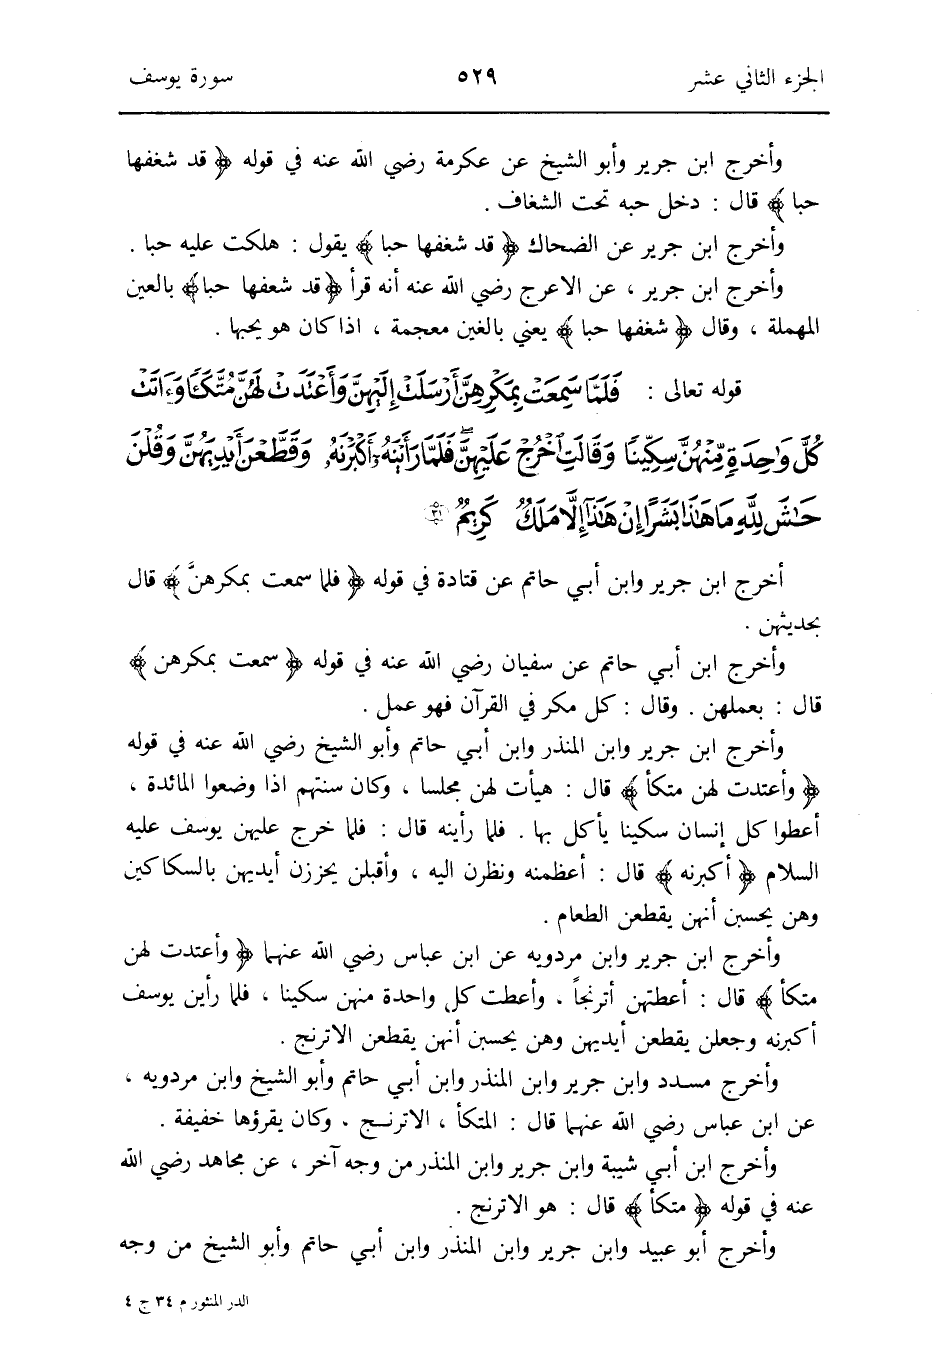 الجزء الثاني عشر ٥٢٩ سورة يوسف
وأخرج ابن جرير وأبو الشيخ عن عكرمة رضي الله عنه في قوله ﴿ قد شغفها
حبا ﴾ قال : دخل حبه تحت الشغاف .
وأخرج ابن جرير عن الضحاك ﴿ قد شغفها حبا ﴾ يقول : هلكت عليه حبا .
وأخرج ابن جرير ، عن الاعرج رضي الله عنه أنه قرأ ﴿ قد شعفها حبا﴾ بالعين
المهملة ، وقال ﴿ شغفها حبا ﴾ يعني بالغين معجمة ، اذا كان هو يحبها .
قوله تعالى : فَلَمَّا سَمِعَتْ بِمَكْرِهِنَّ أَرْسَلَتْ إِلَيْهِنَّ وَأَعْتَدَتْ لَهُنَّ مُتَّكَـًٔا وَءَاتَتْ
كُلَّ وَٰحِدَةٍ مِّنْهُنَّ سِكِّينًا وَقَالَتِ ٱخْرُجْ عَلَيْهِنَّ ۖ فَلَمَّا رَأَيْنَهُۥٓ أَكْبَرْنَهُۥ وَقَطَّعْنَ أَيْدِيَهُنَّ وَقُلْنَ
حَـٰشَ لِلَّهِ مَا هَـٰذَا بَشَرًا إِنْ هَـٰذَآ إِلَّا مَلَكٌ كَرِيمٌ ﴿٣١﴾
أخرج ابن جرير وابن أبي حاتم عن قتادة في قوله ﴿ فلما سمعت بمكرهنَّ ﴾ قال
بحديثهن .
وأخرج ابن أبي حاتم عن سفيان رضي الله عنه في قوله ﴿ سمعت بمكرهن ﴾
قال : بعملهن . وقال : كل مكر في القرآن فهو عمل .
وأخرج ابن جرير وابن المنذر وابن أبي حاتم وأبو الشيخ رضي الله عنه في قوله
﴿ وأعتدت لهن متكأ ﴾ قال : هيأت لهن مجلسا ، وكان سنتهم اذا وضعوا المائدة ،
أعطوا كل إنسان سكينا يأكل بها . فلما رأينه قال : فلما خرج عليهن يوسف عليه
السلام ﴿ أكبرنه ﴾ قال : أعظمنه ونظرن اليه ، وأقبلن يحززن أيديهن بالسكاكين
وهن يحسبن أنهن يقطعن الطعام .
وأخرج ابن جرير وابن مردويه عن ابن عباس رضي الله عنهما ﴿ وأعتدت لهن
متكأ ﴾ قال : أعطتهن أترنجاً ، وأعطت كل واحدة منهن سكينا ، فلما رأين يوسف
أكبرنه وجعلن يقطعن أيديهن وهن يحسبن أنهن يقطعن الاترنج .
وأخرج مسدد وابن جرير وابن المنذر وابن أبي حاتم وأبو الشيخ وابن مردويه ،
عن ابن عباس رضي الله عنهما قال : المتكأ ، الاترنج . وكان يقرؤها خفيفة .
وأخرج ابن أبي شيبة وابن جرير وابن المنذر من وجه آخر ، عن مجاهد رضي الله
عنه في قوله ﴿ متكأ ﴾ قال : هو الاترنج .
وأخرج أبو عبيد وابن جرير وابن المنذر وابن أبي حاتم وأبو الشيخ من وجه
الدر المنثور م ٣٤ ج ٤